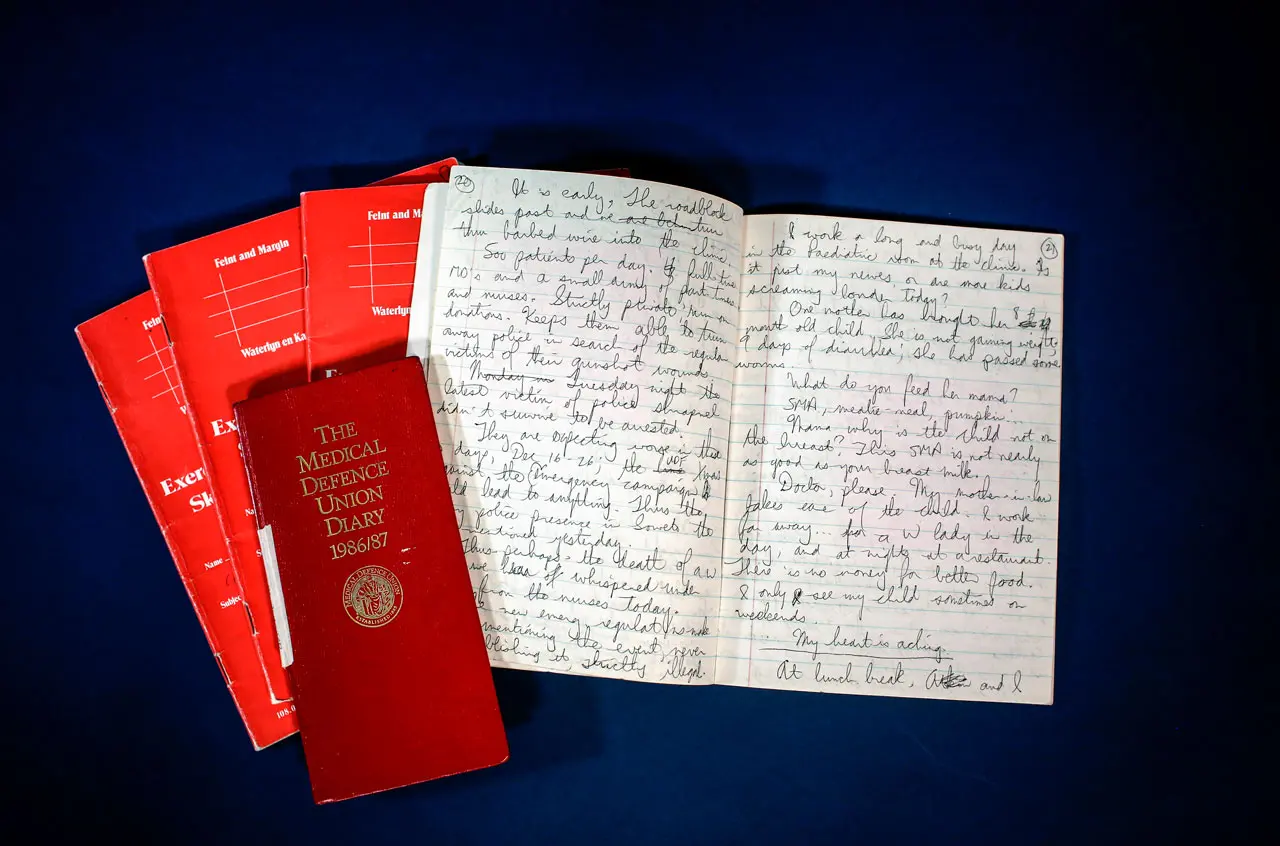 Feint and Margin
Waterlyn en Ka
Feint and Ma
Waterly
Fei
Ex
Exer
Sk
Name
Subjec
108.0
THE
MEDICAL
DEFENCE
UNION
DIARY
1986/87
MEDICAL DEFENCE UNION
ESTABLISHED
20
It is early, The roadblock
slides past and we are
thru barbed wire into the clinic.
500 patients per day. full time
MD's and a small army of part timers
and nurses. Strictly private, run on
donations. Keeps them able to turn
away police in search of the regular
victims of their gunshot wounds.
Monday Tuesday night the
latest victim of police shrapnel
didn't survive to be arrested.
They are expecting worse in the
days, Dec 16-26, the UDF Xmas
against the Emergency campaign
ld lead to anything. Thus the
y police presence in Soweto the
mentioned yesterday.
Thus perhaps the death of a w
we hear of whispered under
from the nurses today.
new emerg. regulations make
mentioning the event, never
blishing it, strictly illegal.
21
I work a long and busy day
in the Paediatric room at the clinic. Is
it just my nerves, or are more kids
screaming louder today?
One mother has brought her 8
month old child. She is not gaining weight,
9 days of diarrhea, she has passed some
worms.
What do you feed her mama?
SMA, mealie-meal, pumpkin...
Mama why is the child not on
the breast? This SMA is not nearly
as good as your breast milk.
Doctor, please. My mother-in-law
takes care of the child. I work
far away... for a W lady in the
day, and at nights at a restaurant.
There is no money for better food.
I only see my child sometimes on
weekends.
My heart is aching.
At lunch break, and I